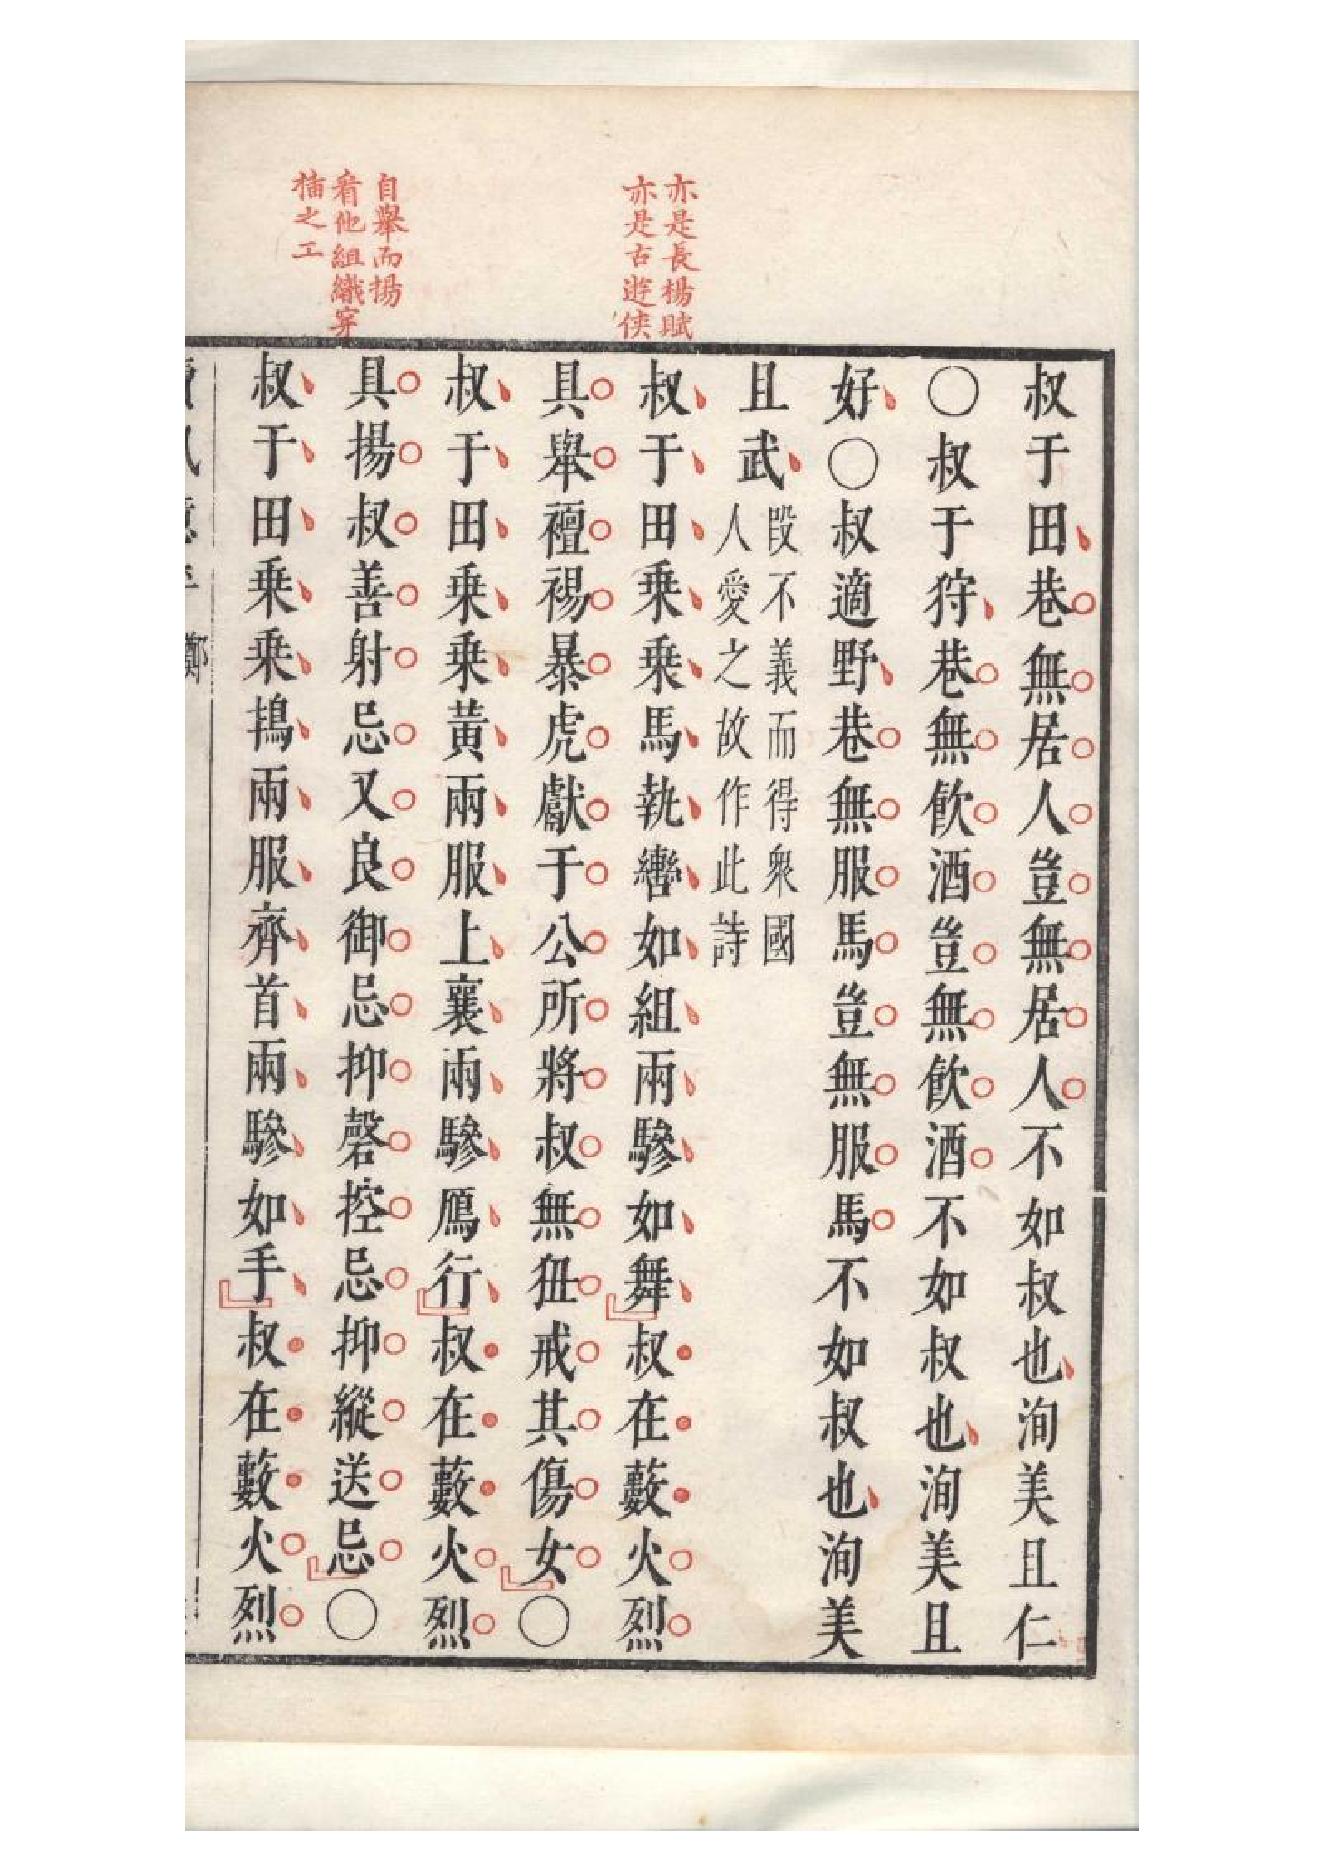 亦是長楊賦
亦是古遊俠
自舉而揚
看他組織穿
插之工
叔于田巷無居人豈無居人不如叔也洵美且仁
〇叔于狩巷無飲酒豈無飲酒不如叔也洵美且
好〇叔適野巷無服馬豈無服馬不如叔也洵美
且武
段不義而得衆國
人愛之故作此詩
叔于田乘乘馬執轡如組兩驂如舞叔在藪火烈
具舉襢裼暴虎獻于公所將叔無狃戒其傷女〇
叔于田乘乘黃兩服上襄兩驂鴈行叔在藪火烈
具揚叔善射忌又良御忌抑磬控忌抑縱送忌〇
叔于田乘乘鴇兩服齊首兩驂如手叔在藪火烈
鄭